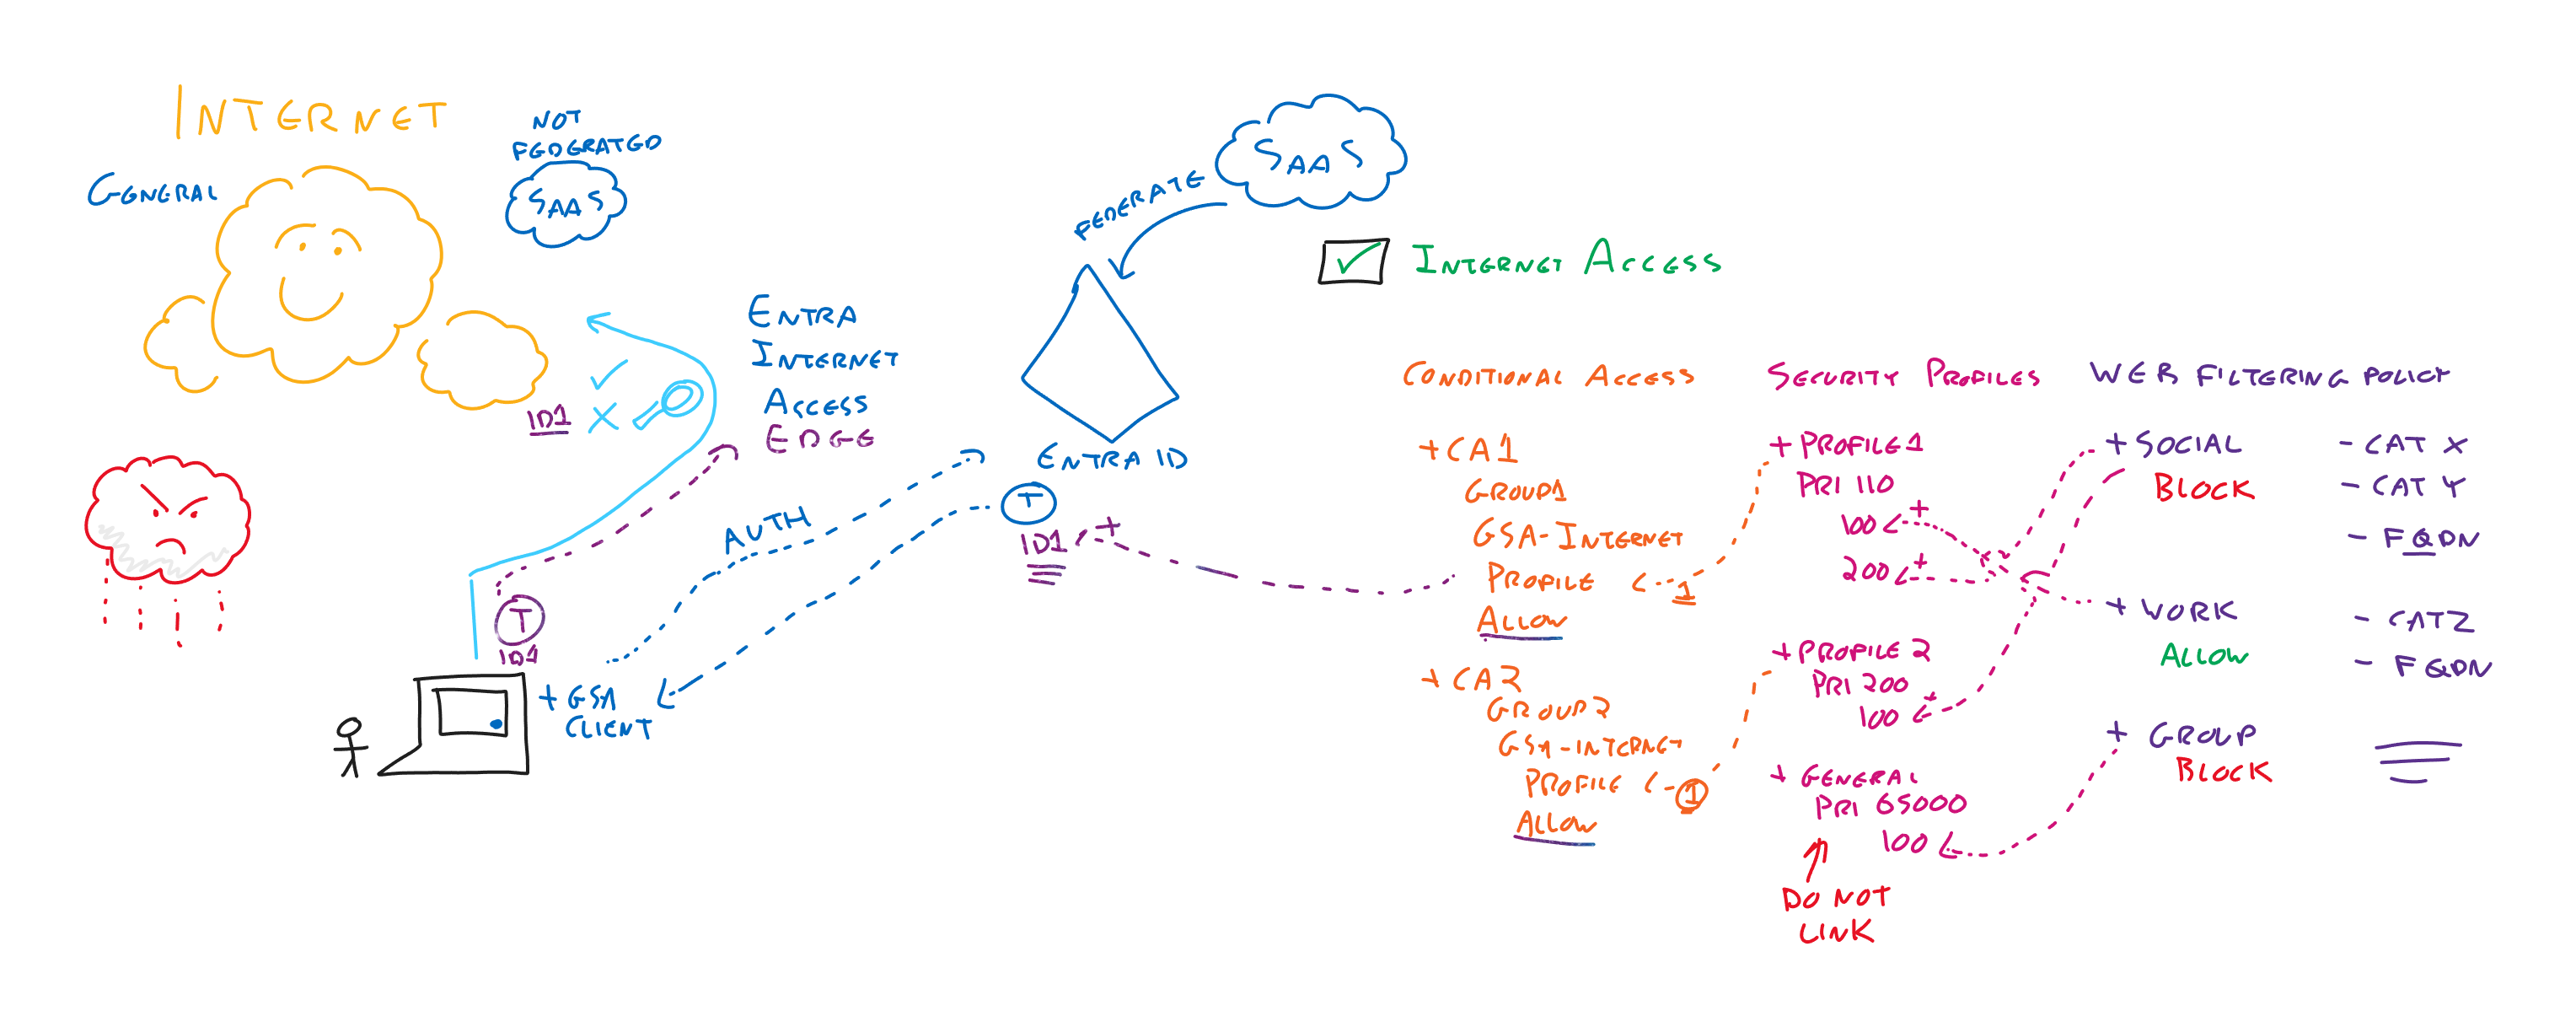 INTERNET
GENERAL
NOT
FEDERATED
SAAS
ID1
ENTRA
INTERNET
ACCESS
EDGE
T
ID1
+ GSA
CLIENT
AUTH
FEDERATE
SAAS
ENTRA ID
T
ID1 +
INTERNET ACCESS
CONDITIONAL ACCESS
+ CA1
GROUP1
GSA-INTERNET
PROFILE
1
ALLOW
+ CA2
GROUP2
GSA-INTERNET
PROFILE
1
ALLOW
SECURITY PROFILES
+ PROFILE1
PRI 110
100 +
200 +
+ PROFILE 2
PRI 200
100 +
+ GENERAL
PRI 65000
100
DO NOT
LINK
WEB FILTERING POLICY
+ SOCIAL
BLOCK
- CAT X
- CAT Y
- FQDN
+ WORK
ALLOW
- CATZ
- FQDN
+ GROUP
BLOCK